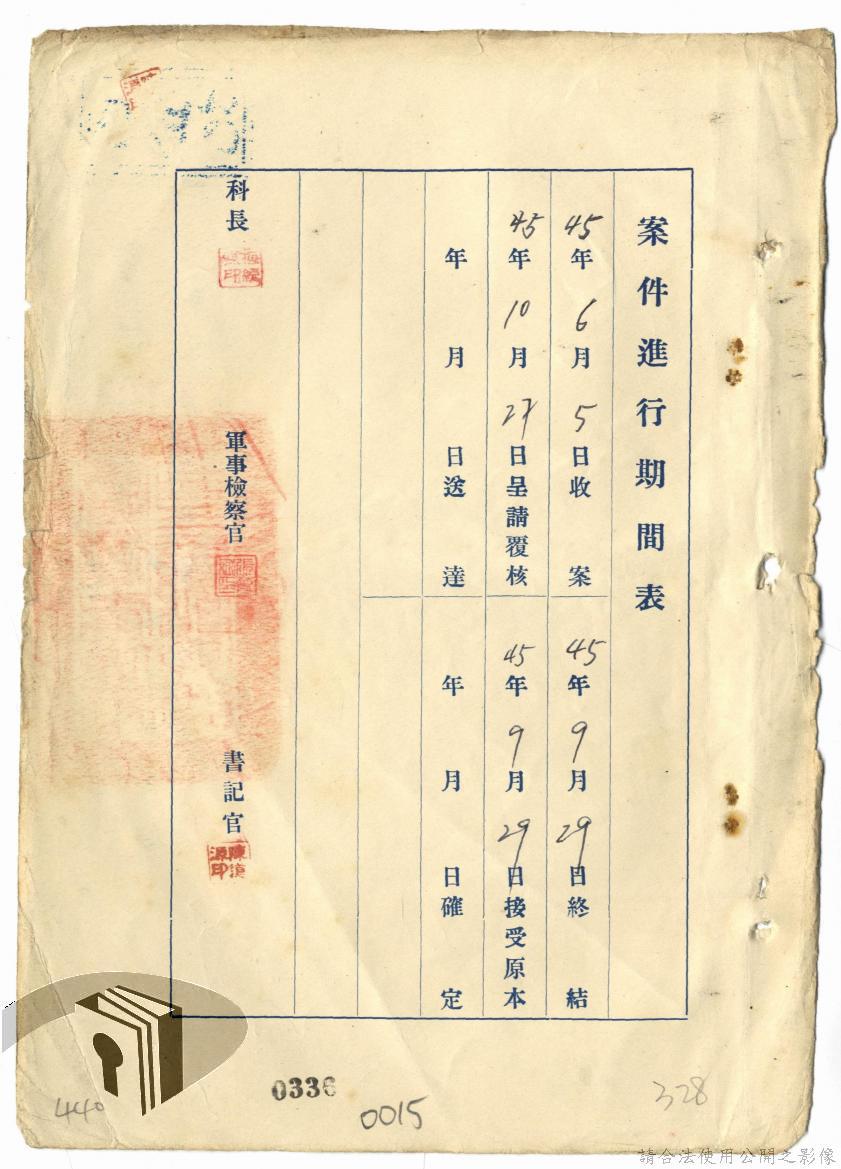 案件進行期間表
45年6月5日收案
45年9月29日終結
45年10月27日呈請覆核
45年9月29日接受原本
年月日送達
年月日確定
科長
軍事檢察官
書記官
陳漢源印
0336
0015
440
328
請合法使用公開之影像